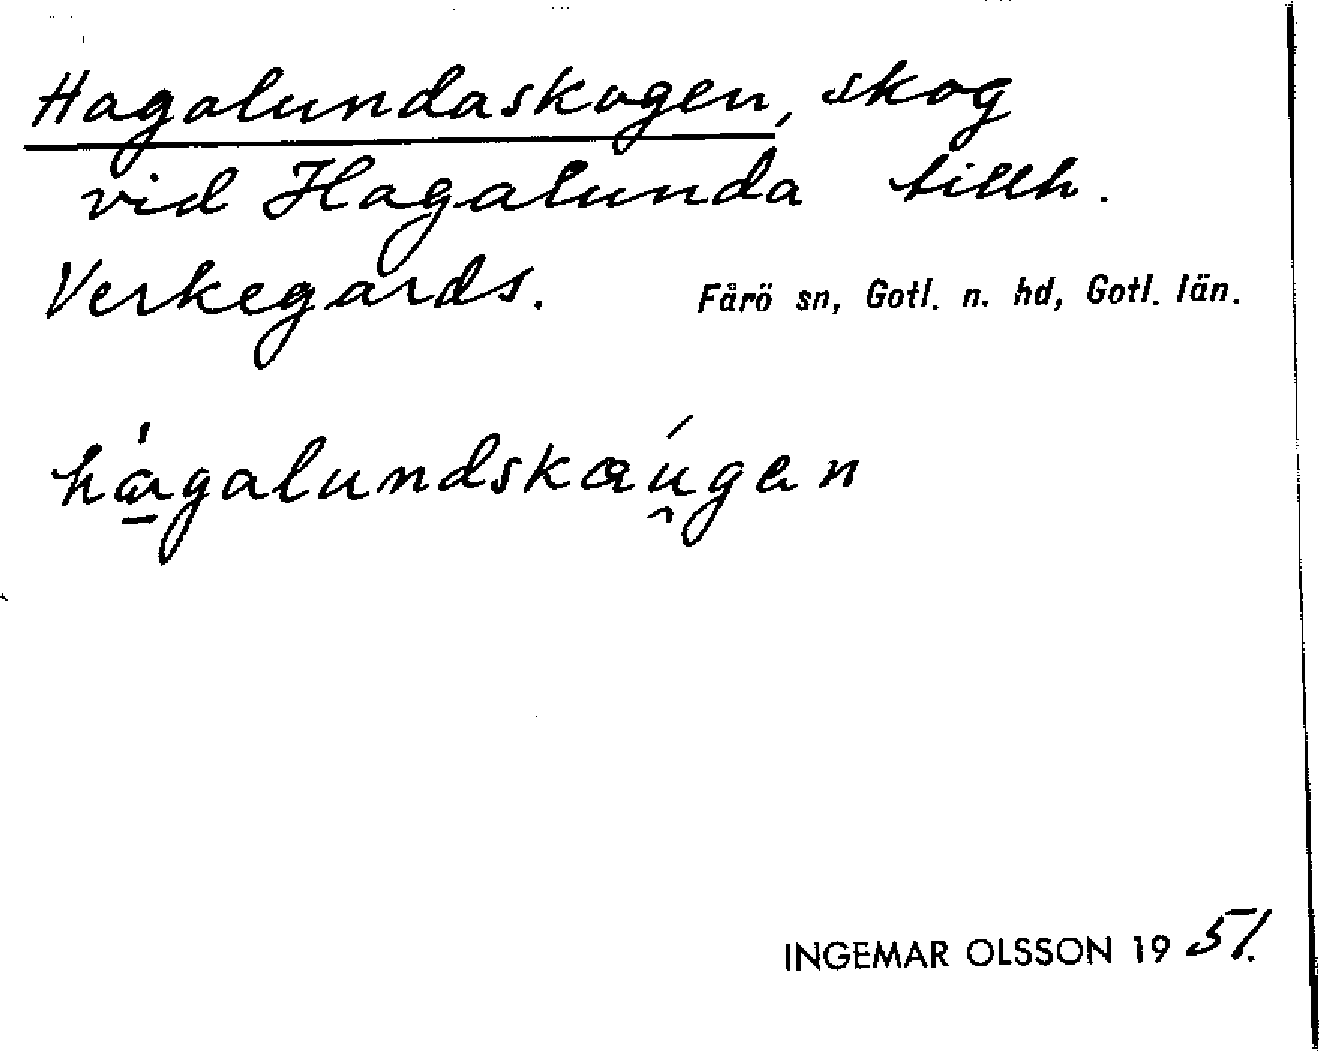 Hagalundaskogen, skog
vid Hagalunda tillh.
Verkegards. Fårö sn, Gotl. n. hd, Gotl. län.
hàgalundskaúgen
INGEMAR OLSSON 1951.